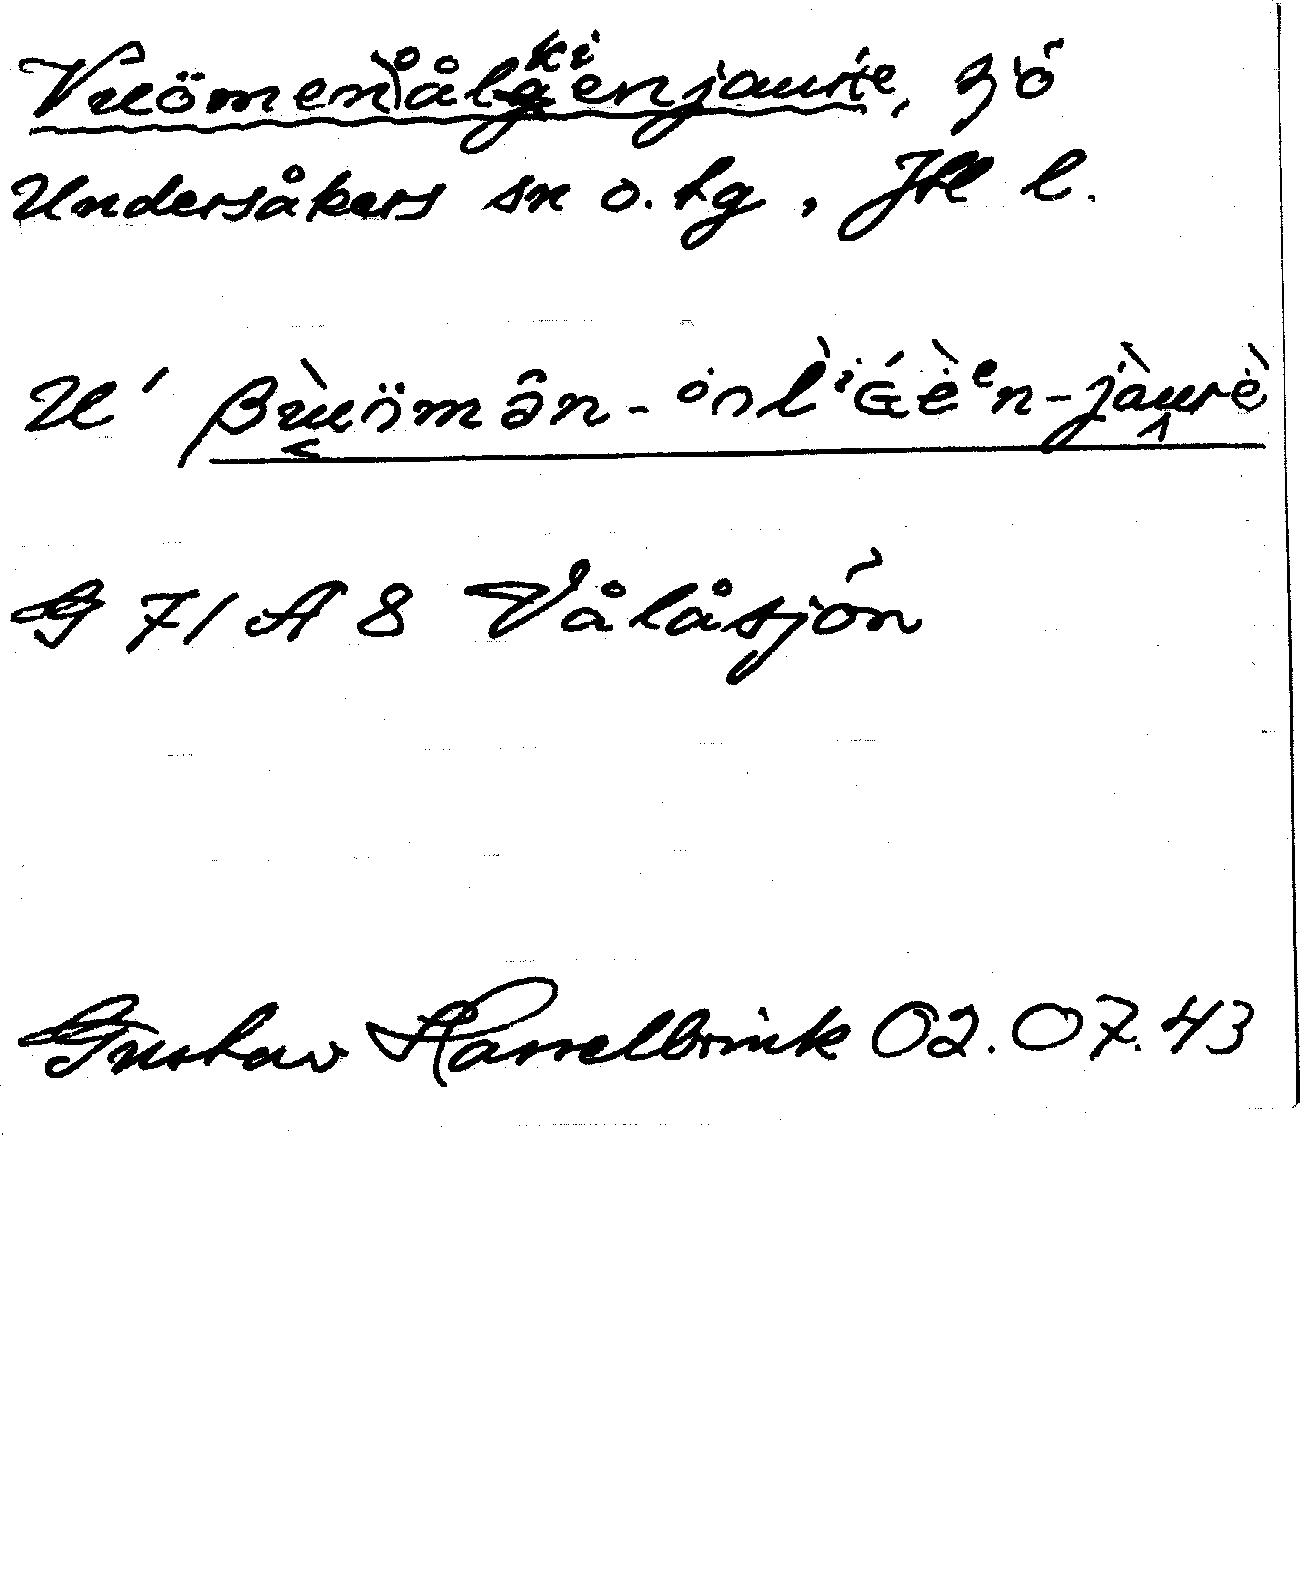 Vuömenålkienjaurie, sjö
Undersåkers sn o. tg, Jtl l.
U' βùu̯ömân-ȯnl'iǴèᵉn-jàu̯rè
G 71 A 8 Vålåsjön
Gustav Hasselbrink 02.07.43